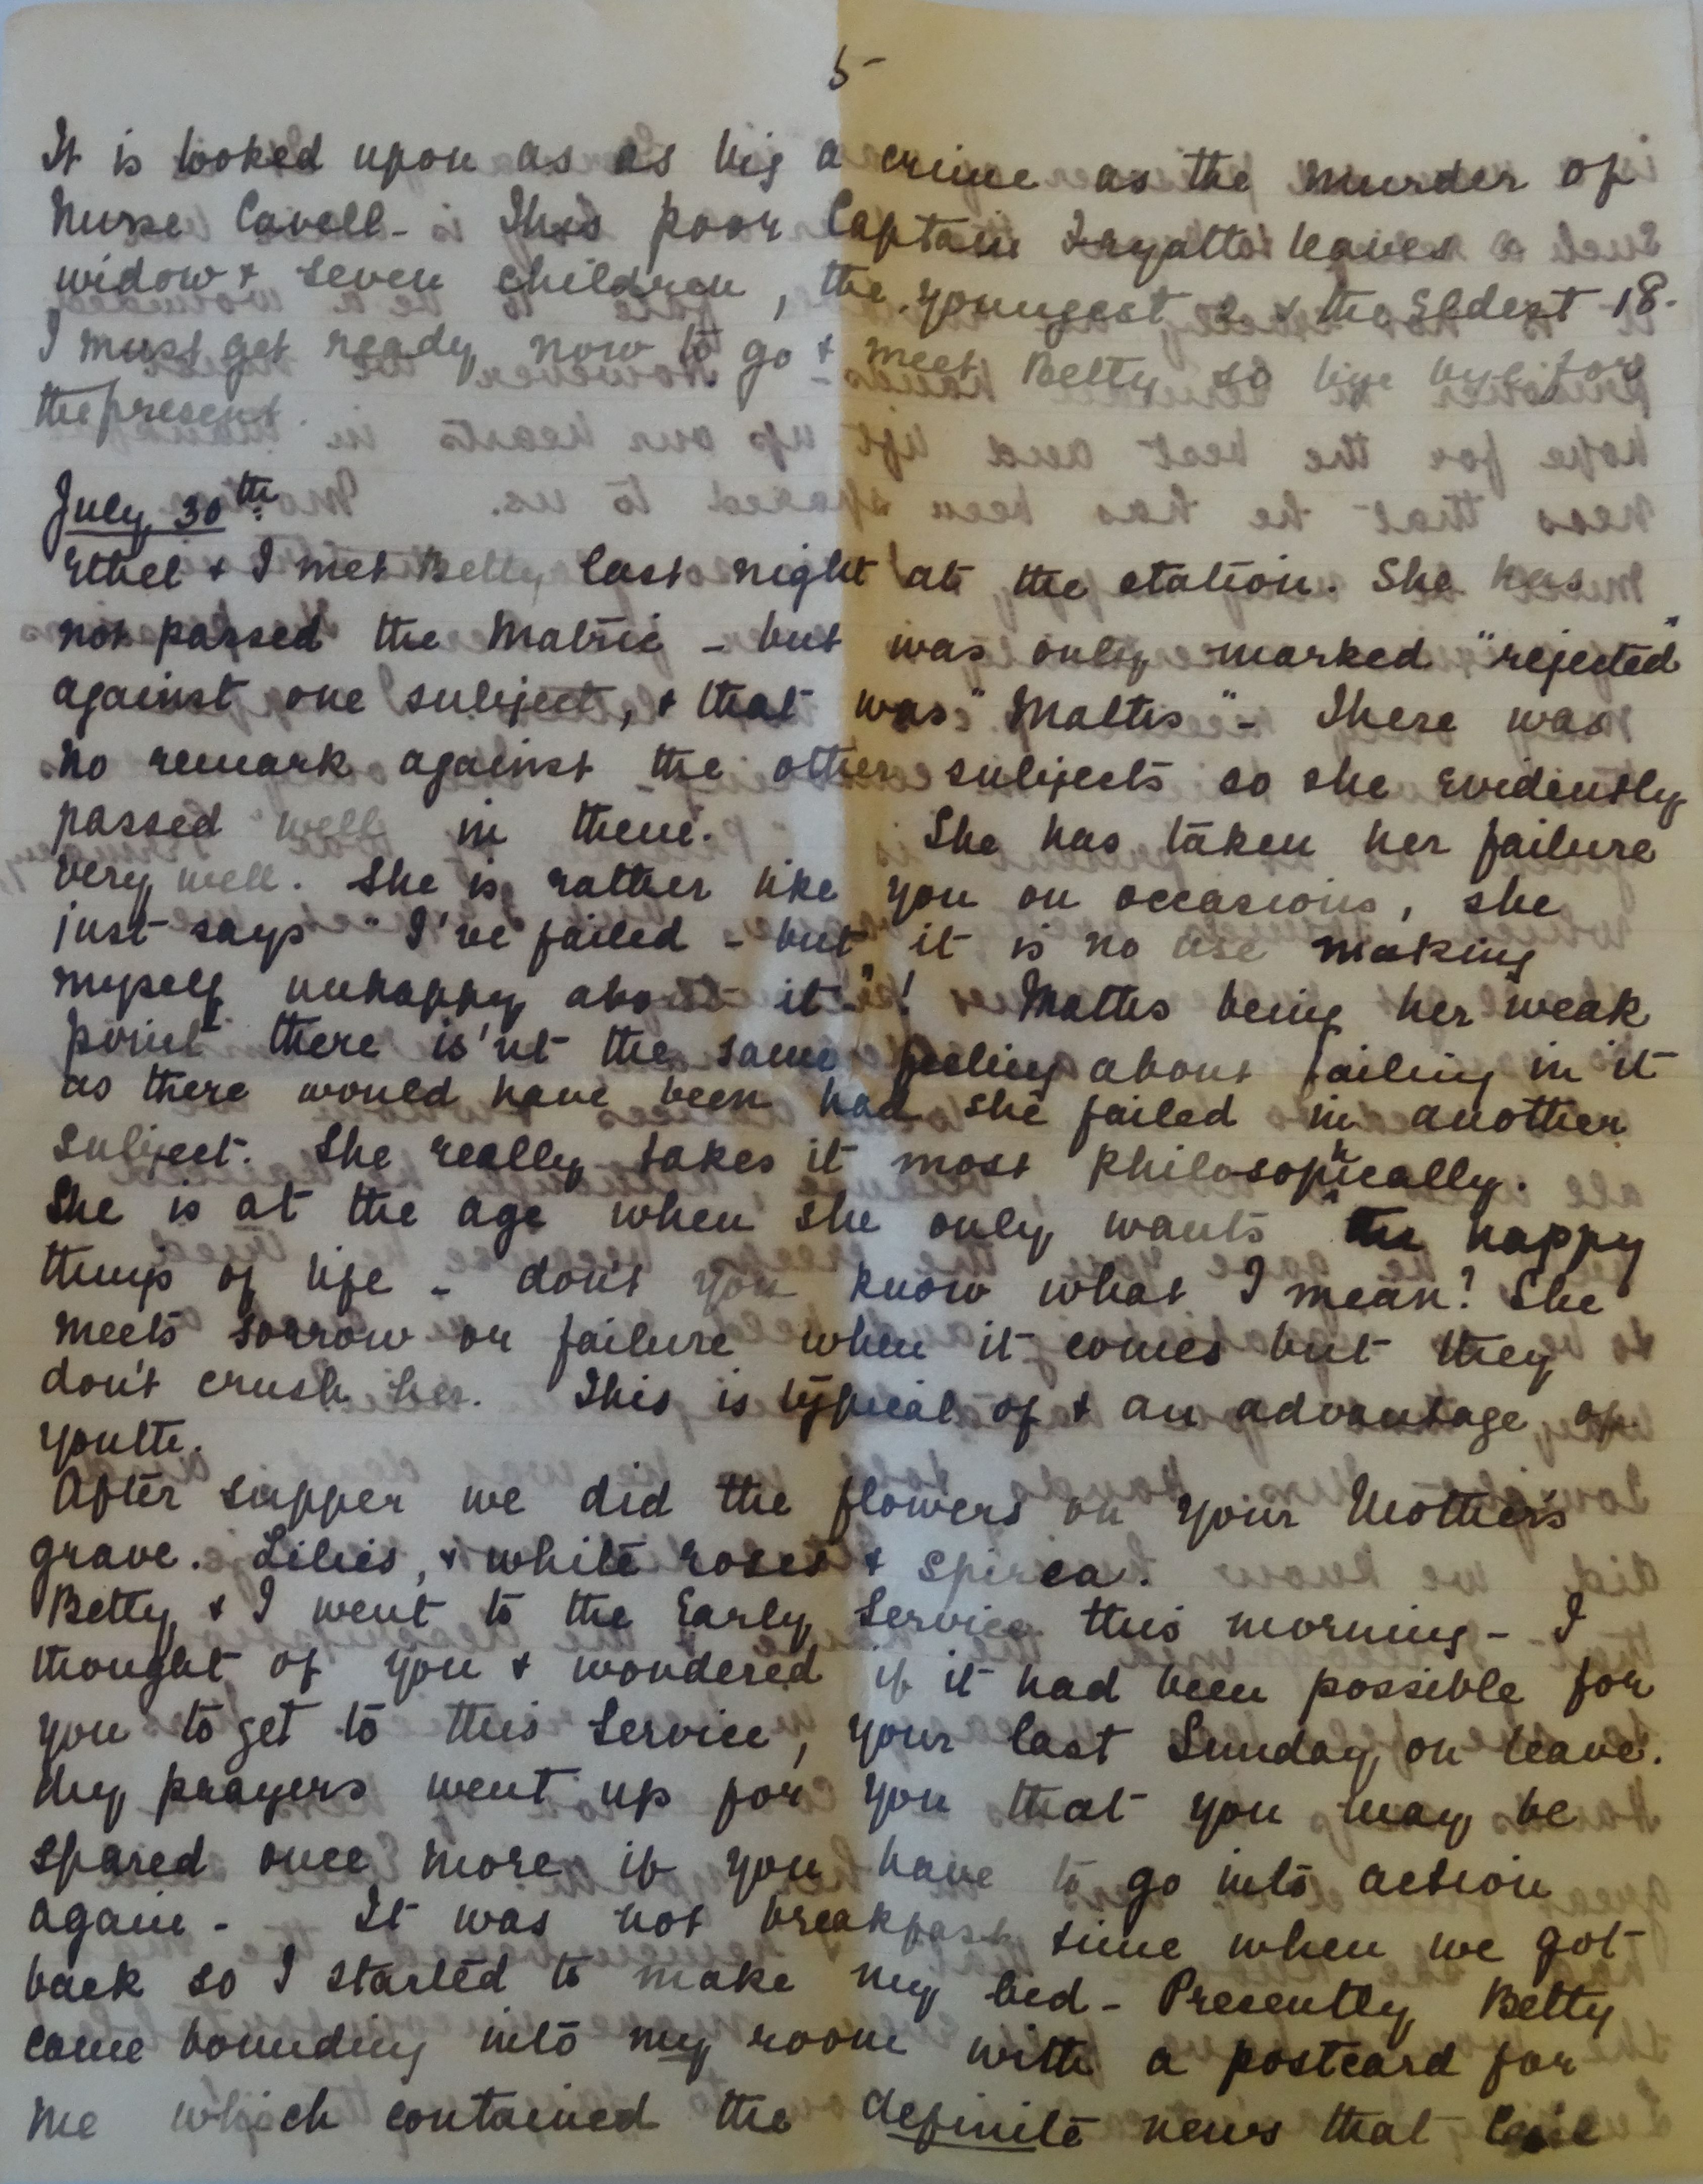 5-
It is looked upon as as big a crime as the murder of
Nurse Cavell - This poor Captain Fryatt leaves a
widow & seven children, the youngest 2 & the Eldest 18.
I must get ready now to go & meet Betty so bye bye for
the present.
July 30th
Ethel & I met Betty last night at the station. She has
not passed the Matric - but was only marked "rejected"
against one subject, & that was "Maths" - There was
no remark against the other subjects so she evidently
passed well in them. She has taken her failure
very well. She is rather like you on occasions, she
just says "I've failed - but it is no use making
myself unhappy about it"! Maths being her weak
point there is'nt the same feeling about failing in it
as there would have been had she failed in another
subject. She really takes it most philosophically.
She is at the age when she only wants the happy
things of life - don't you know what I mean? She
meets sorrow or failure when it comes but they
don't crush her. This is typical of & an advantage of
youth.
After supper we did the flowers on your Mother's
grave. Lilies, & white roses & spirea.
Betty & I went to the Early Service this morning - I
thought of you & wondered if it had been possible for
you to get to this Service, your last Sunday on leave.
My prayers went up for you that you may be
spared once more if you have to go into action
again - It was not breakfast time when we got
back so I started to make my bed - Presently Betty
came bounding into my room with a postcard for
me which contained the definite news that